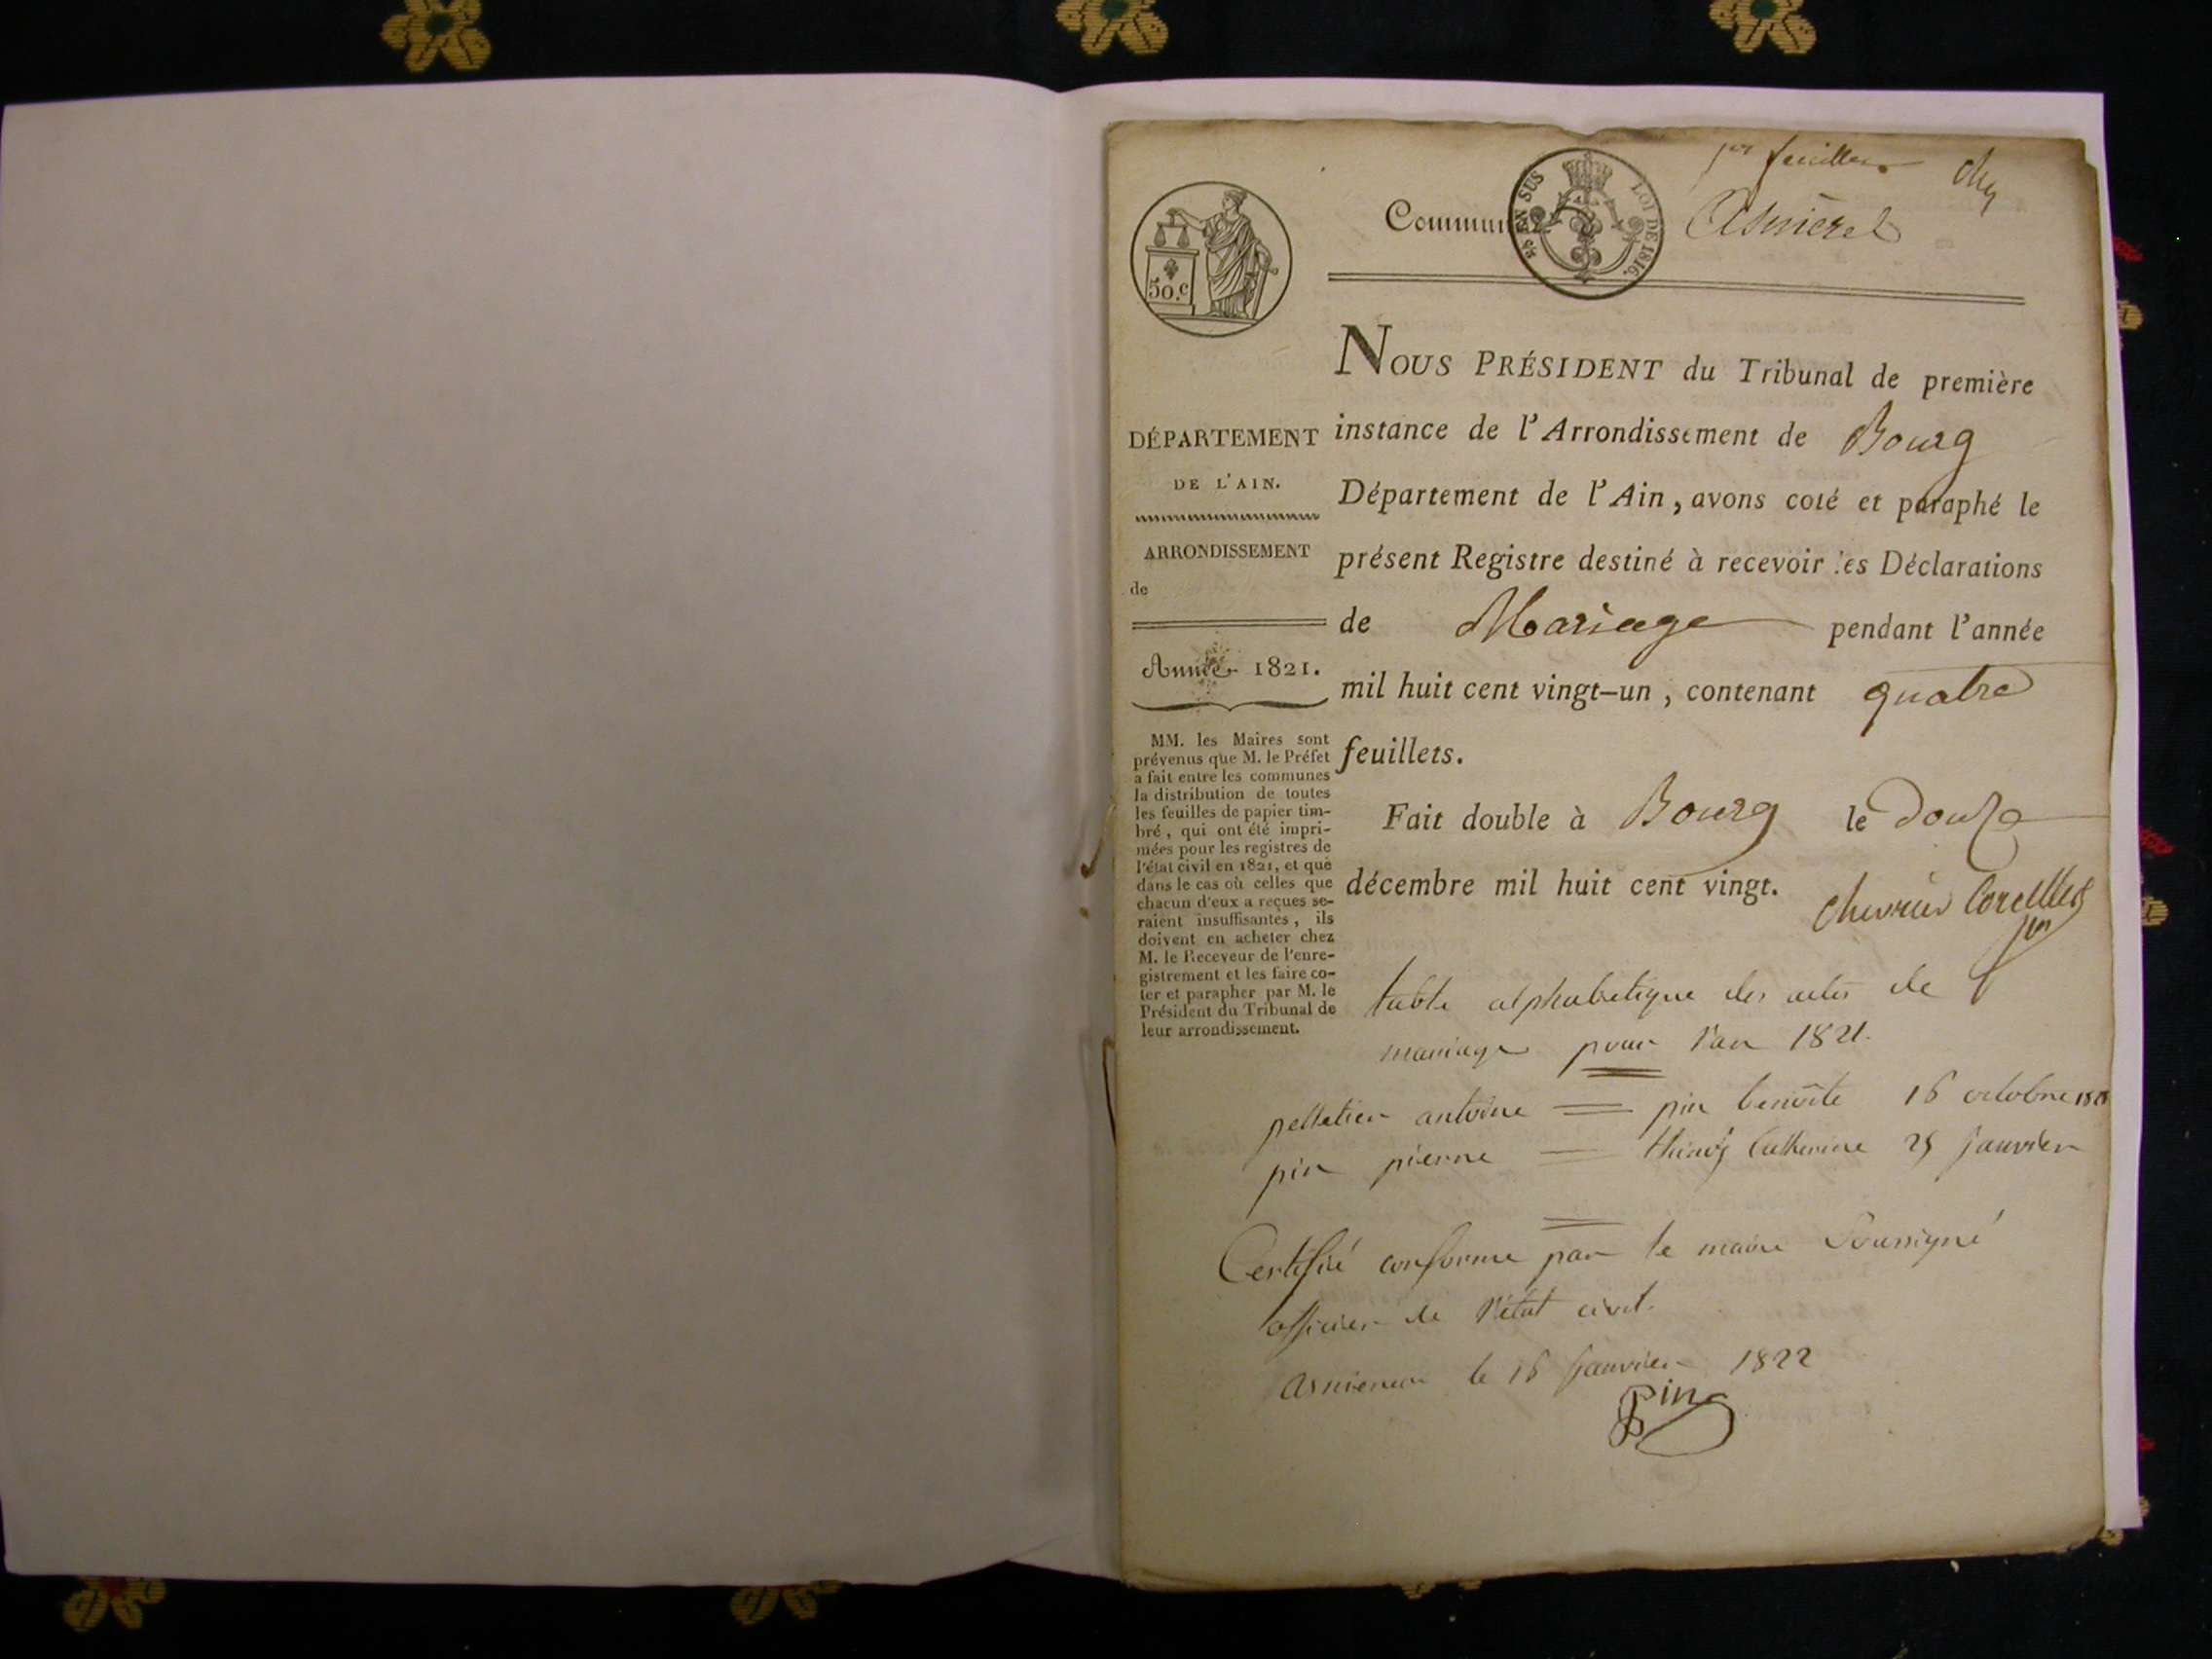 1er feuillet
Commune
Asnieres
¼ EN SUS
LOI DE 1816.
50.c
NOUS PRÉSIDENT du Tribunal de première
instance de l'Arrondissement de Bourg
Département de l'Ain, avons coté et paraphé le
présent Registre destiné à recevoir les Déclarations
de Mariage pendant l'année
mil huit cent vingt-un, contenant quatre
feuillets.
Fait double à Bourg le Douze
décembre mil huit cent vingt.
DÉPARTEMENT
DE L'AIN.
ARRONDISSEMENT
de
Année 1821.
MM. les Maires sont
prévenus que M. le Préfet
a fait entre les communes
la distribution de toutes
les feuilles de papier tim-
bré, qui ont été impri-
mées pour les registres de
l'état civil en 1821, et que
dans le cas où celles que
chacun d'eux a reçues se-
raient insuffisantes, ils
doivent en acheter chez
M. le Receveur de l'enre-
gistrement et les faire co-
ter et parapher par M. le
Président du Tribunal de
leur arrondissement.
table alphabetique des actes de
mariage pour l'an 1821.
pelletier antoine = pin benoite 16 octobre
pin pierre = Catherine 25 janvier
Certifié conforme par le maire Soussigné
officier de l'état civil.
le 16 janvier 1822
Pin